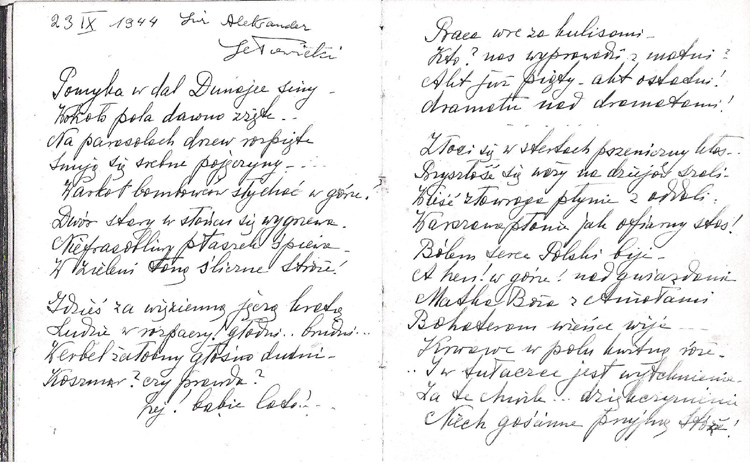 23 IX 1944 Lir Aleksander
Pomyka w dal Dunajec siny -
Wokoło pola dawno zżęte..
Na parasolach drzew rozpięte
snują się srebne pajęczyny - ...
Warkot bombowców słychać w górze.
Dwór stary w słońcu się wygrzewa.
Niefrasobliwy ptaszek śpiewa -
W zieleni toną śliczne Stróże!
Gdzieś za więzienną kratą
Ludzie w rozpaczy, głodni.. brudni...
Werbel żałobny głośno dudni -
Koszmar? czy prawda?
hej! babie lato! ...
Praca wre za kulisami -
Kto? nas wyprowadzi z matni?
Akt już piąty - akt ostatni!
dramatu nad dramatami!
Złoci się w stertach pszeniczny kłos...
Przyszłość się waży na dziejów szali -
Wieść złowroga płynie z oddali:
Warszawa płonie jak ofiarny stos!
Bólem serce Polski bije -
A hen! w górze! nad gwiazdami
Matka Boża z Aniołami
Bohaterom wieńce wije - ...
Krwawe w polu kwitną róże -
.. I w tułaczce jest wytchnienie -
Za te chwile... dziękczynienie
Niech gościnne przyjmą Stróże!